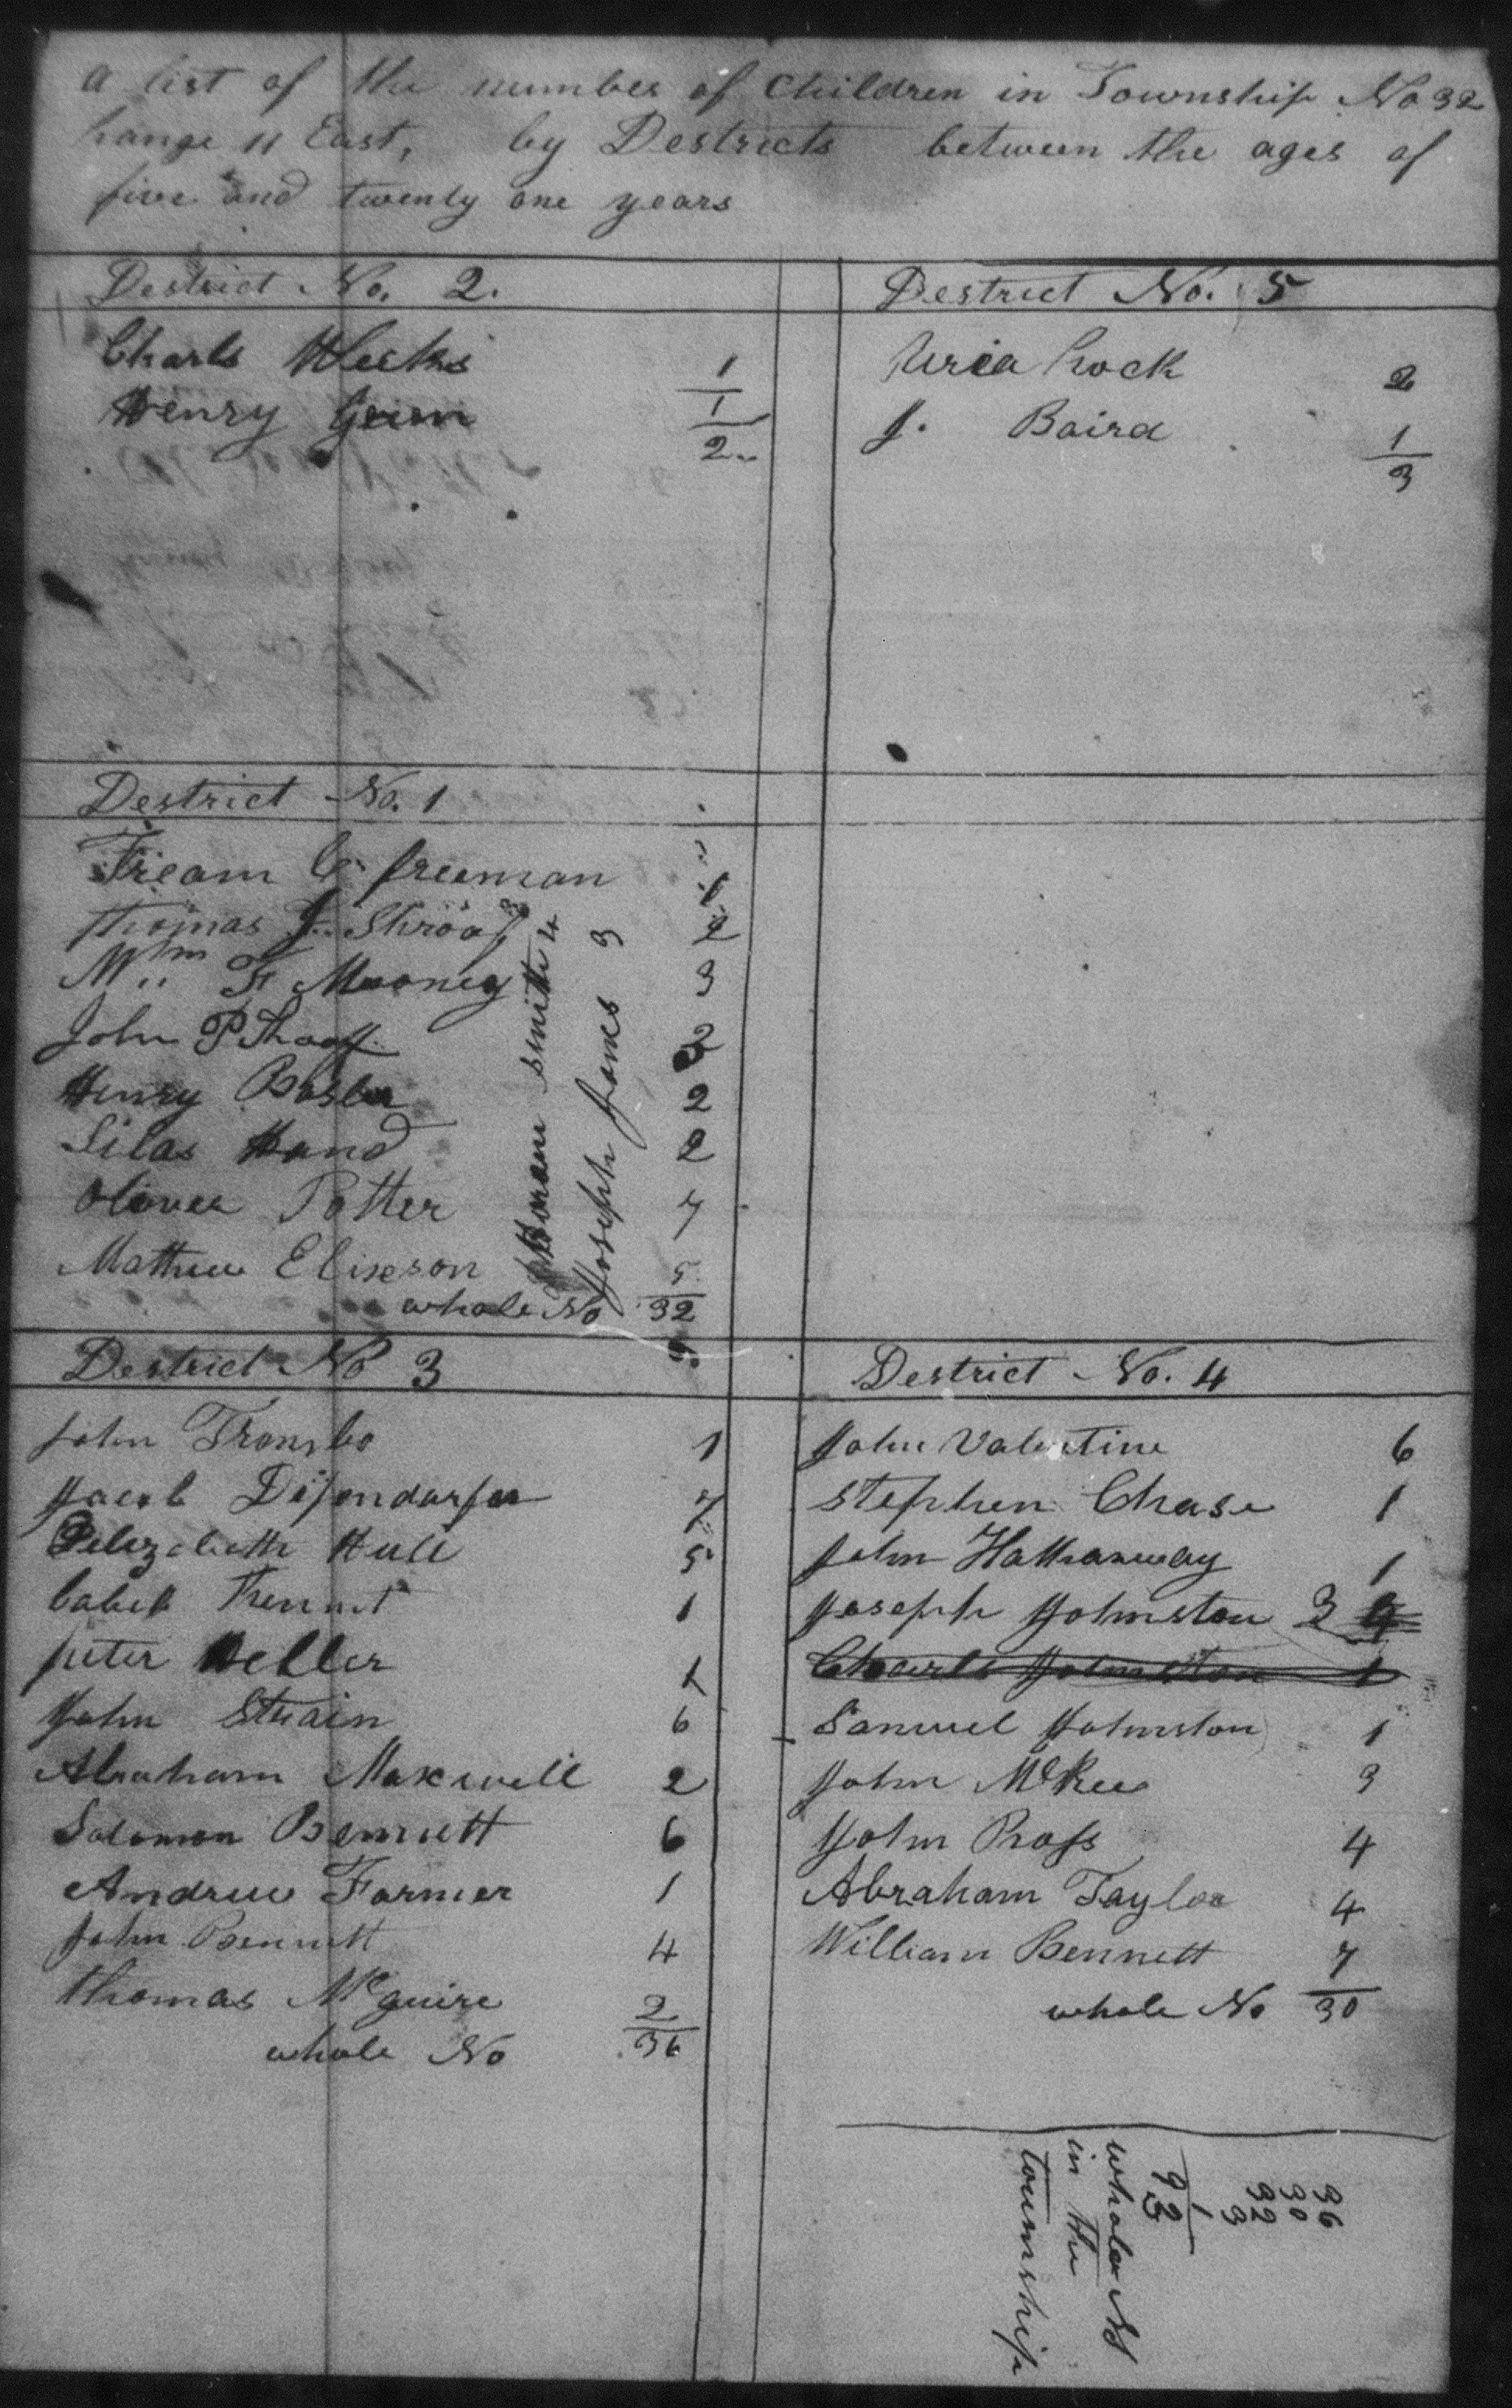 a list of the number of Children in Township No 32
Range 11 East, by Destricts between the ages of
five and twenty one years
Destrict No. 2.
Charls Weeks 1
Henry 1
2
Destrict No. 5
Uria Rock 2
J. Baird 1
3
Destrict No. 1
C. freeman 1
Thomas J. 2
Wm F Mooney 3
John P 2
Henry Bosler 2
Silas Hand 2
Oliver Potter 7
Mathew Elixson 5
whole No 32
smith 4
Joseph jones 3
Destrict No 3
John Trombo 1
Jacob Difendarfer 7
Elizabeth Hull 5
Caleb 1
peter Heller 1
John Strain 6
Abraham Maxwell 2
Solomon Bennett 6
Andrew Farmer 1
John Bennett 4
Thomas McGuire 2
whole No 36
Destrict No. 4
John Valentine 6
Stephen Chase 1
John Hathaway 1
Joseph Johnston 3
Charls Johnston 1
Samuel Johnston 1
John McKee 3
John Ross 4
Abraham Taylor 4
William Bennett 7
whole No 30
36
30
32
3
1
93
whole No
in the
township